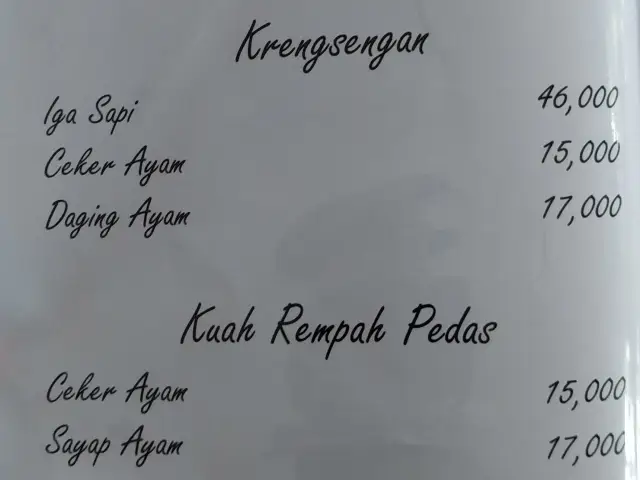 Krengsengan
Iga Sapi 46,000
Ceker Ayam 15,000
Daging Ayam 17,000
Kuah Rempah Pedas
Ceker Ayam 15,000
Sayap Ayam 17,000